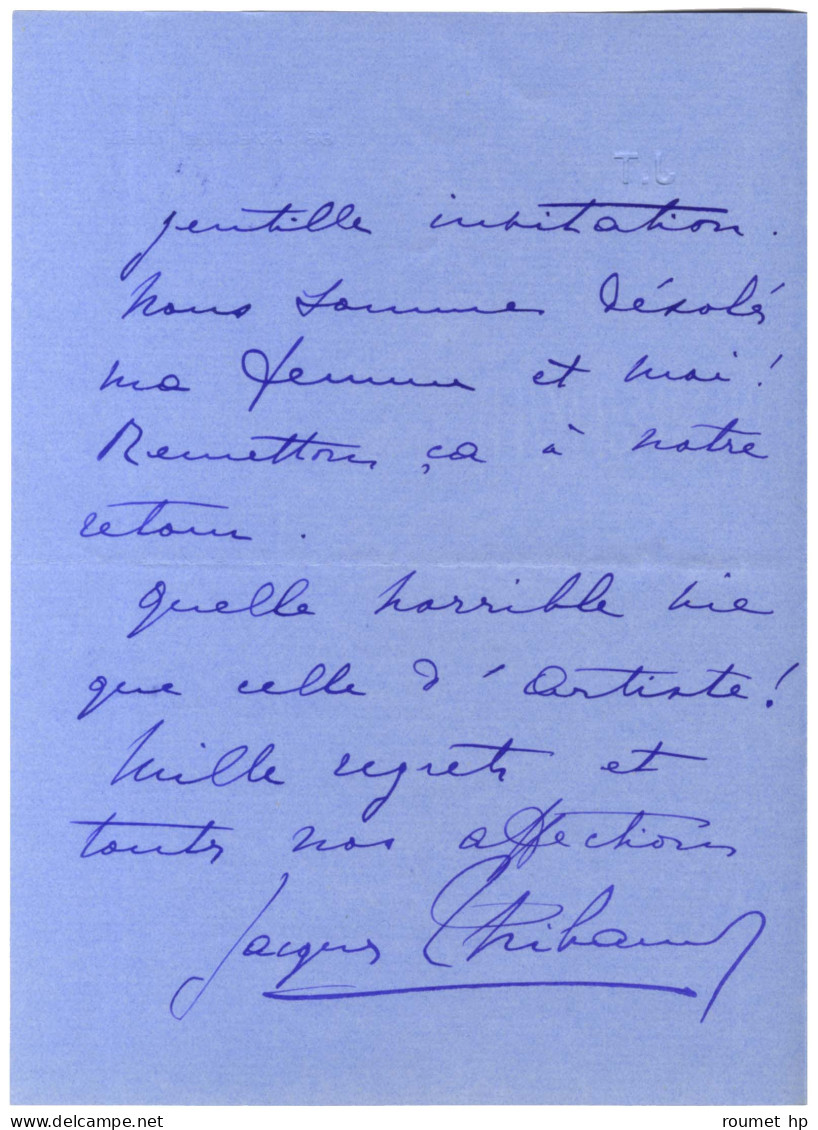 T.J
gentille invitation.
Nous sommes désolés
ma femme et moi!
Remettons ça à notre
retour.
Quelle horrible vie
que celle d'artiste!
Mille regrets et
toutes nos affections
Jacques Thibaud
delcampe.net
roumet hp